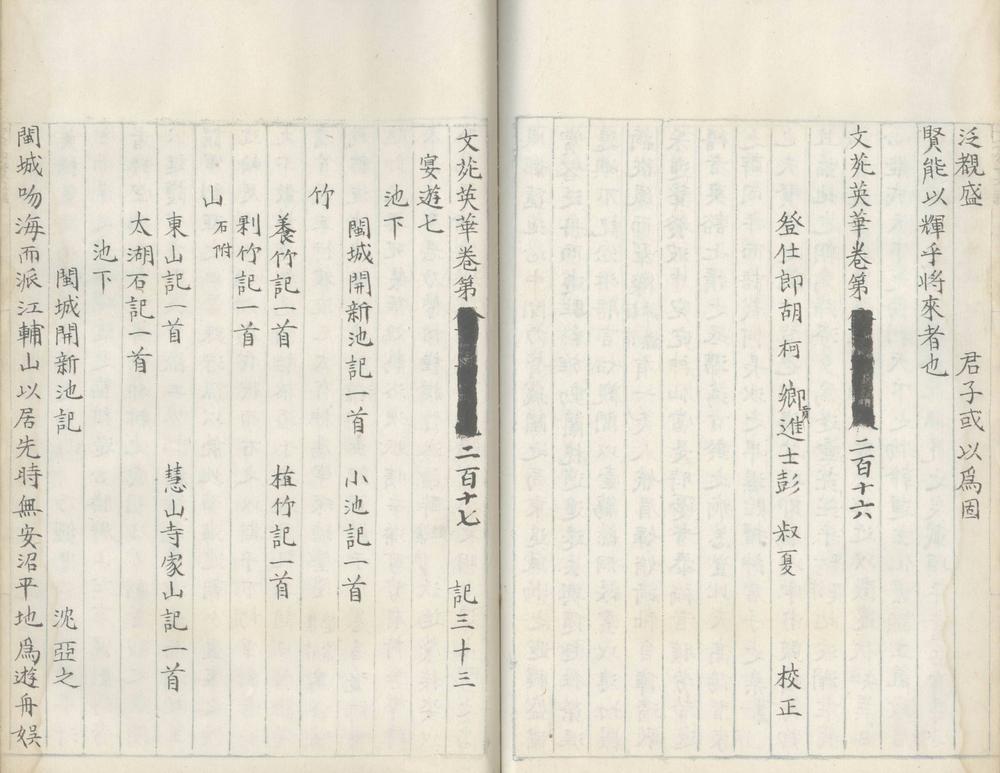 泛觀盛　　　　　　君子或以爲因
賢能以輝乎將來者也
文苑英華卷第　二百十六
登仕郎胡柯　鄉貢進士彭　叔夏　　校正
文苑英華卷第　二百十七　　記三十三
宴遊七
池下
閩城開新池記一首　小池記一首
竹
養竹記一首　　　植竹記一首
剩竹記一首
山石附
東山記一首　　　慧山寺家山記一首
太湖石記一首
池下
閩城開新池記　　　　　沈亞之
閩城吻海而派江輔山以居先時無安沼平地爲遊舟娛